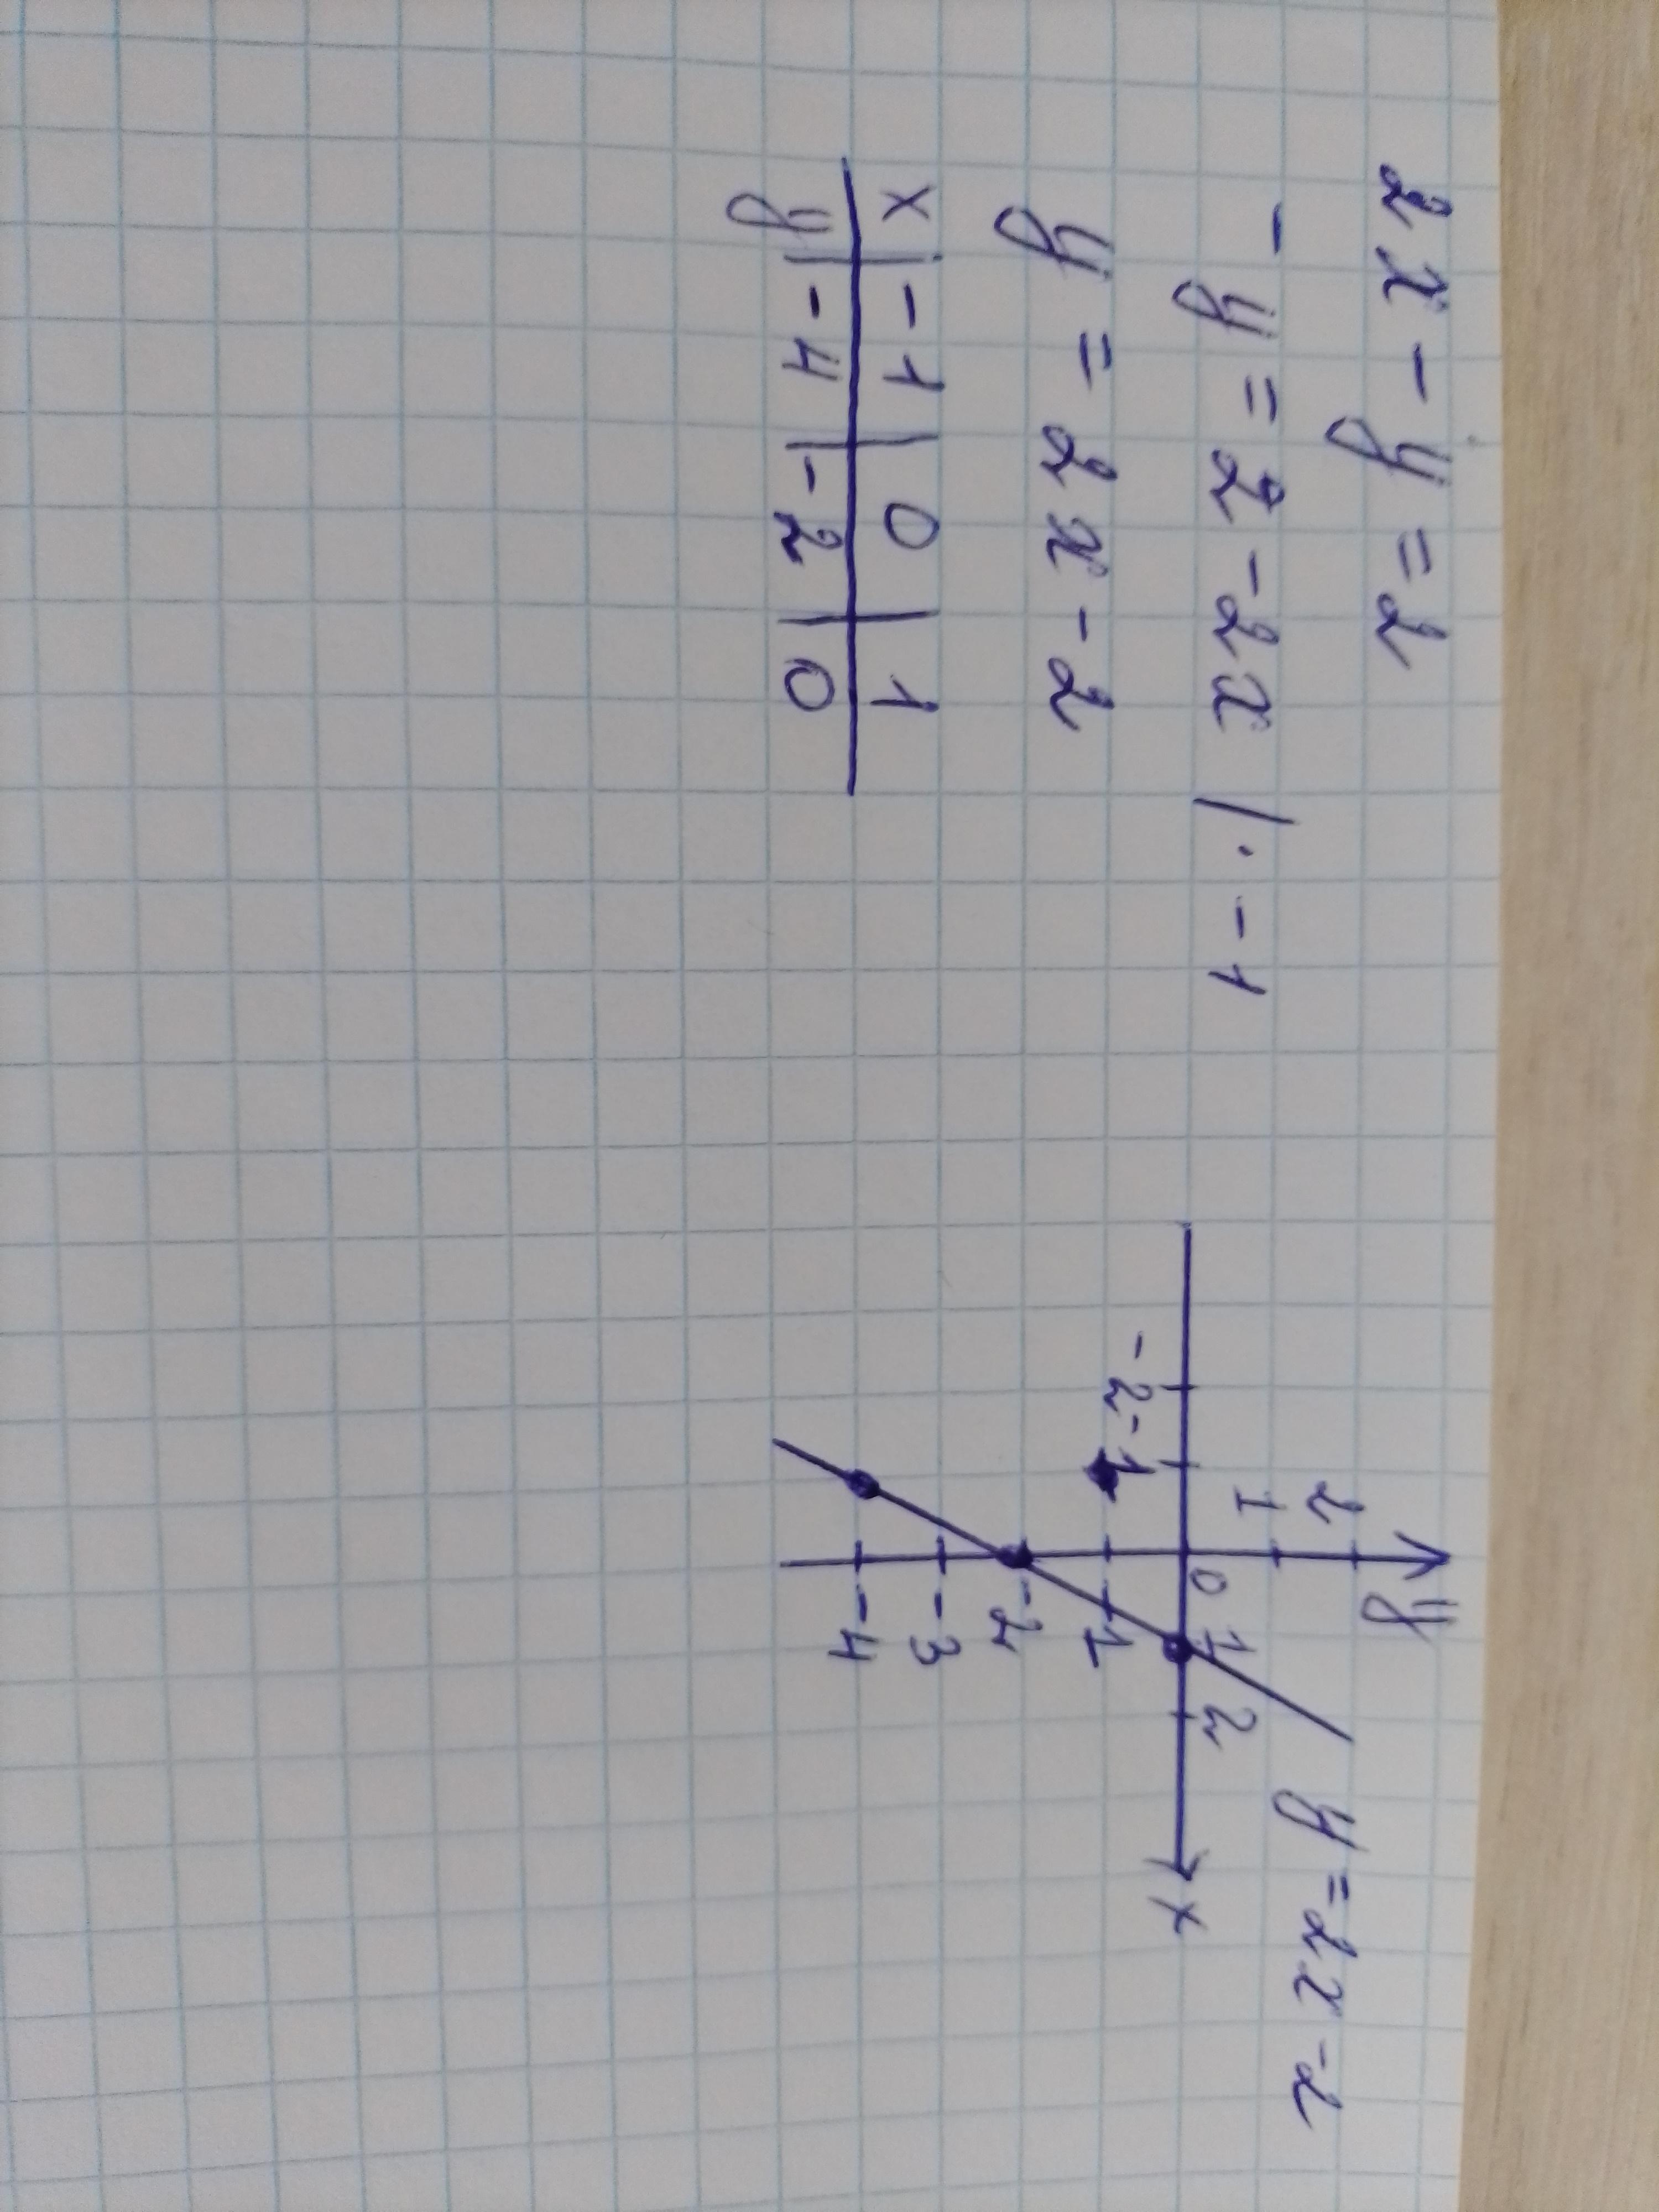 2x - y = 2
- y = 2 - 2x / · - 1
y = 2x - 2
x | -1 | 0 | 1
y | -4 | -2 | 0
y
2
1
y = 2x - 2
-2 -1 0 1 2 x
-1
-2
-3
-4